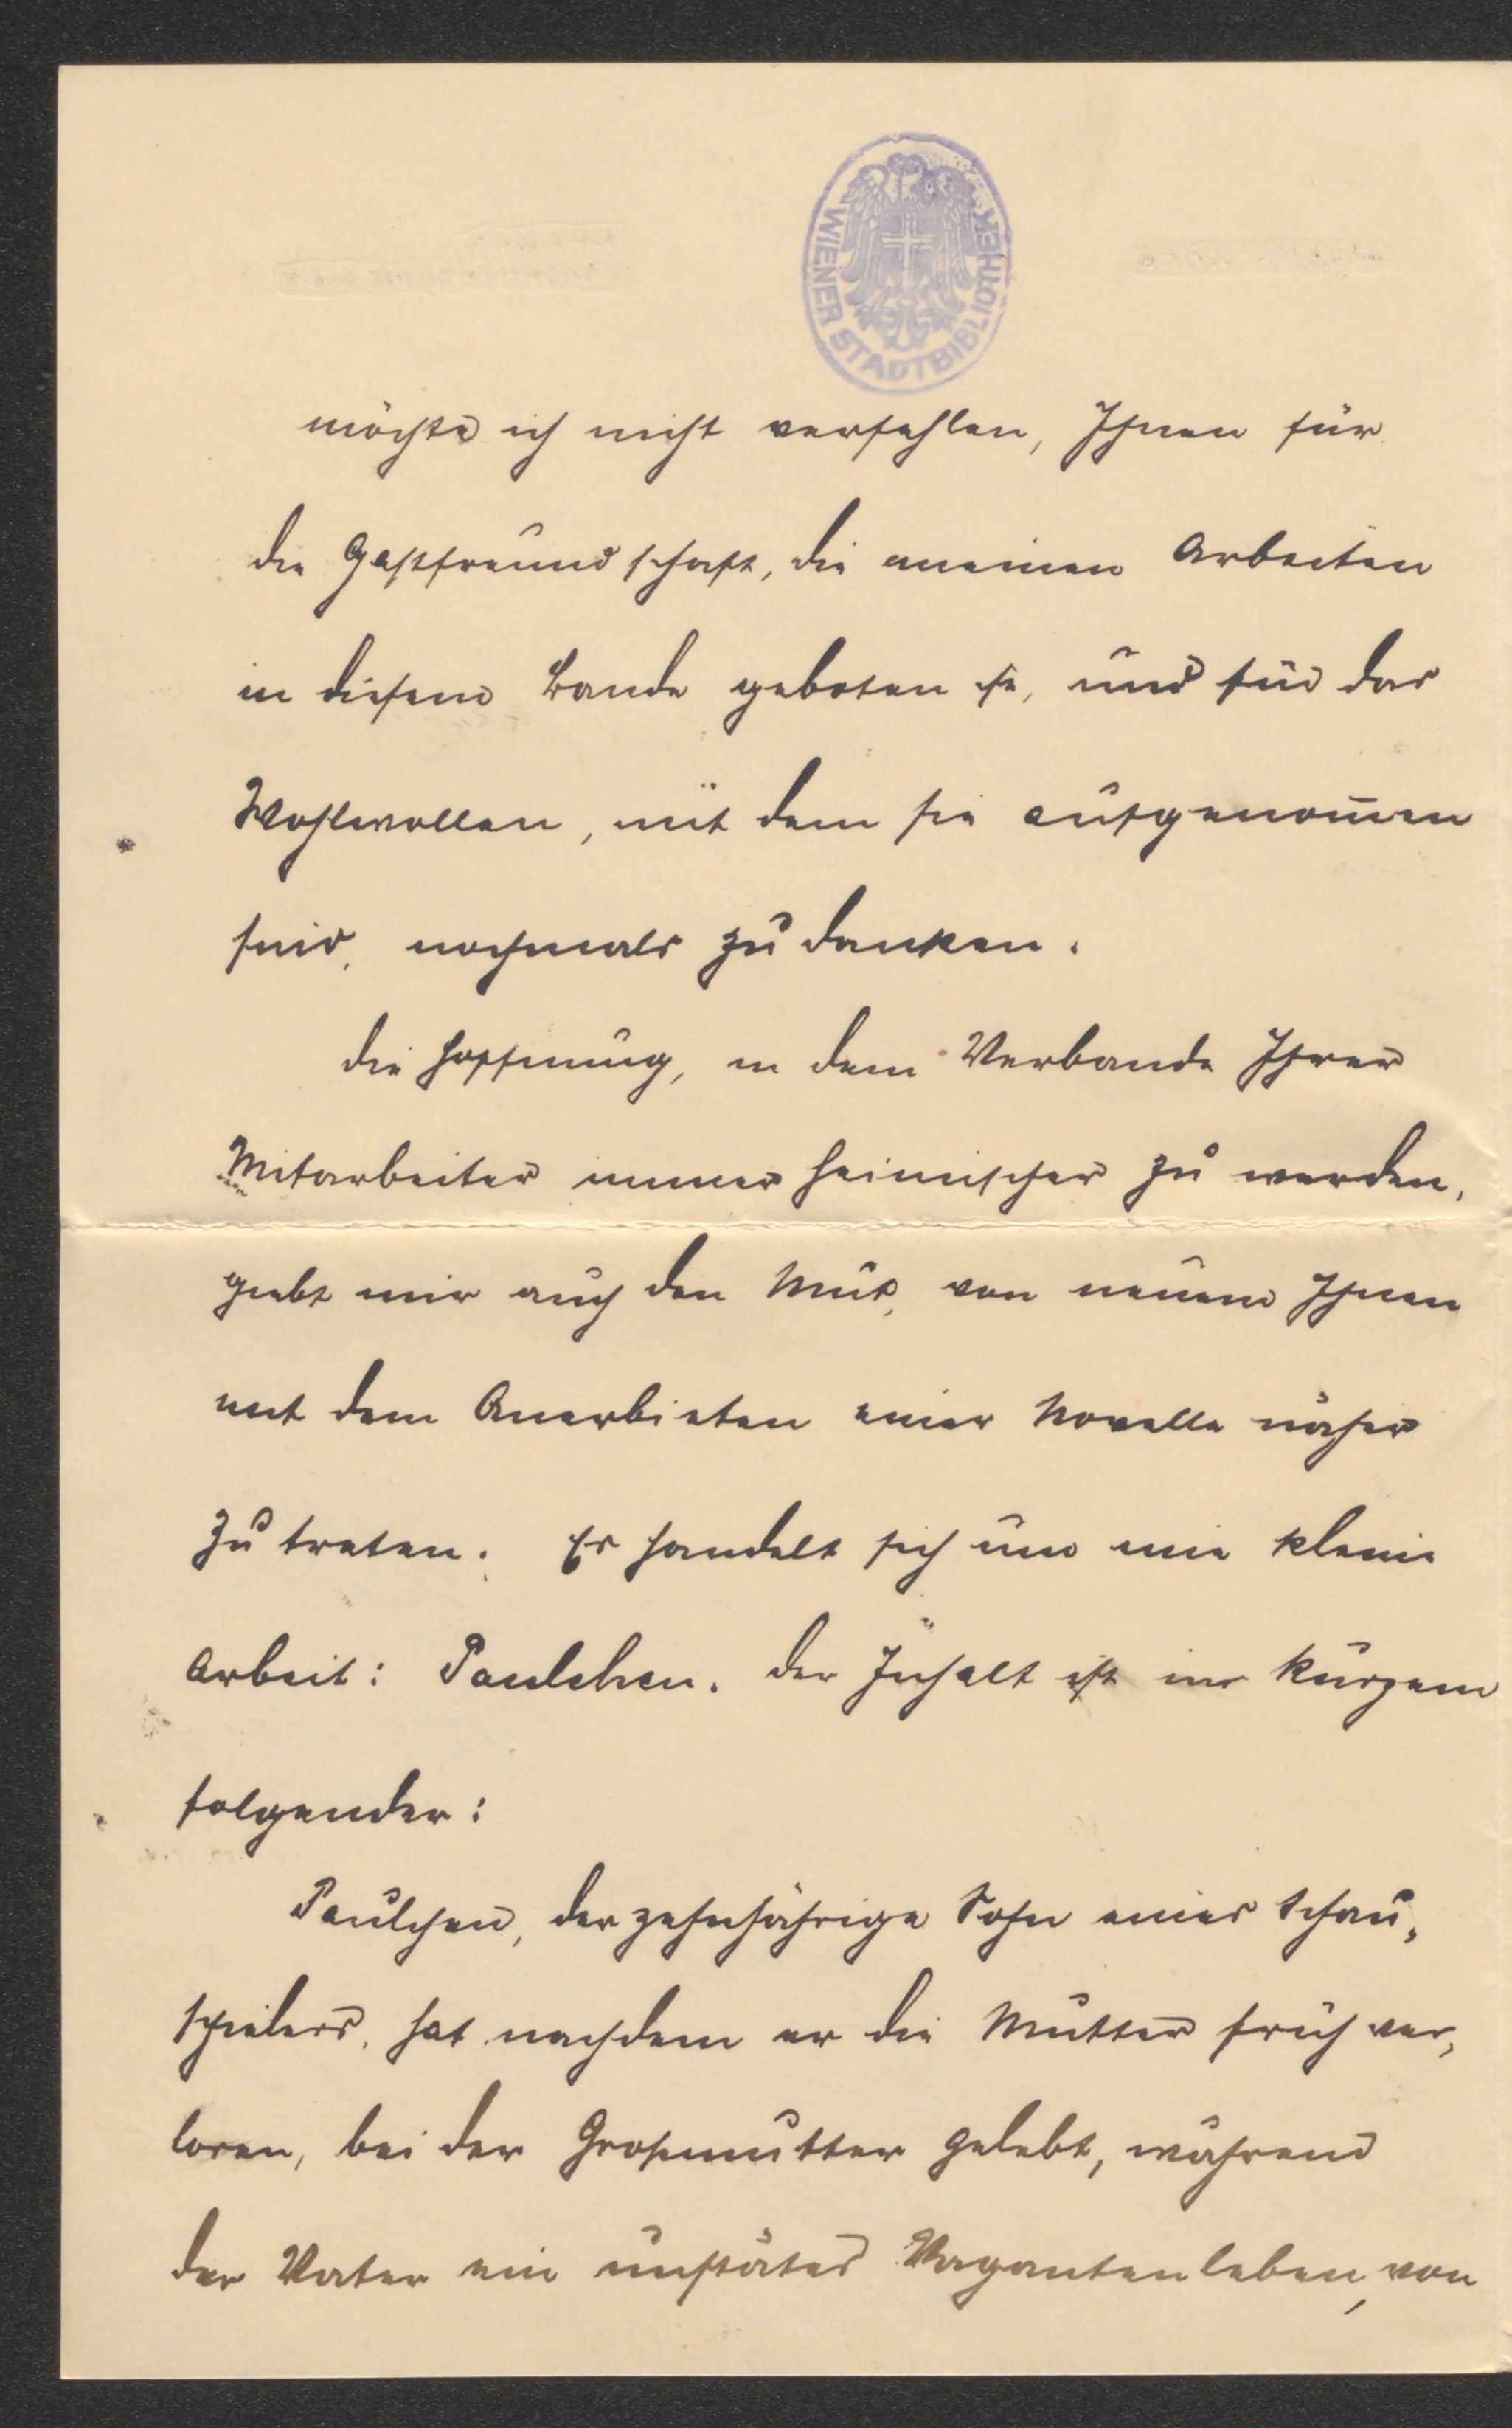 WIENER STADTBIBLIOTHEK
möchte ich nicht verfehlen, Ihnen für
die Gastfreundschaft, die meinen Arbeiten
in diesem Bande geboten ist, und für das
Wohlwollen, mit dem sie aufgenommen
sind, nochmals zu danken.
Die Hoffnung, in dem Verbande Ihrer
Mitarbeiter immer heimischer zu werden,
giebt mir auch den Mut, von neuem Ihnen
mit dem Anerbieten einer Novelle näher
zu treten. Es handelt sich um eine kleine
Arbeit: Paulchen. Der Inhalt ist in kurzem
folgender:
Paulchen, der zehnjährige Sohn eines Schau„
spielers, hat nachdem er die Mutter früh ver„
loren, bei der Großmutter gelebt, während
der Vater ein unstätes Vagantenleben, von